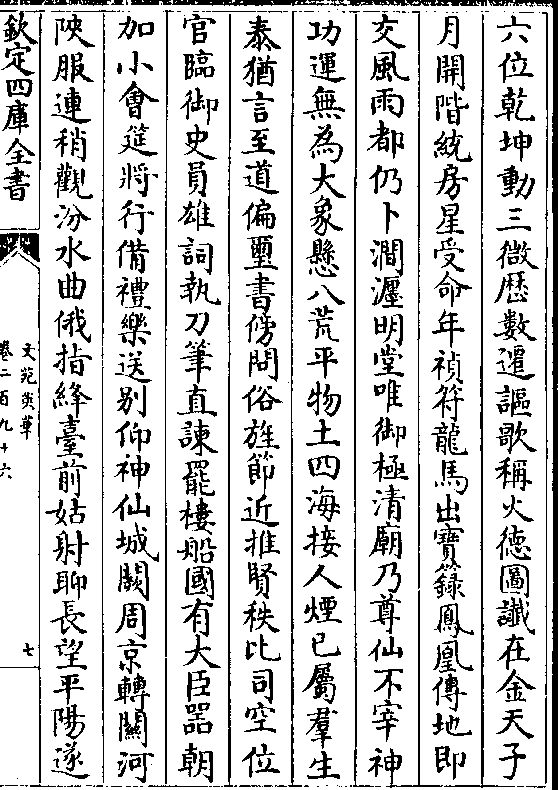 六位乾坤動三微歷數遷謳歌稱火徳圖讖在金天子
月開階統房星受命年禎符龍馬出寶籙鳳凰傳地即
交風雨都仍卜澗瀍明堂唯御極清廟乃尊仙不宰神
功運無為大象懸八荒平物土四海接人煙已屬羣生
泰猶言至道偏璽書傍問俗旌節近推賢秩比司空位
官臨御史員雄詞執刀筆直諫罷樓船國有大臣器朝
加小會筵將行備禮樂送别仰神仙城闕周京轉關河
陜服連稍觀汾水曲俄指絳臺前姑射聊長望平陽遂
欽定四庫全書
文苑英華
卷二百九十六
七